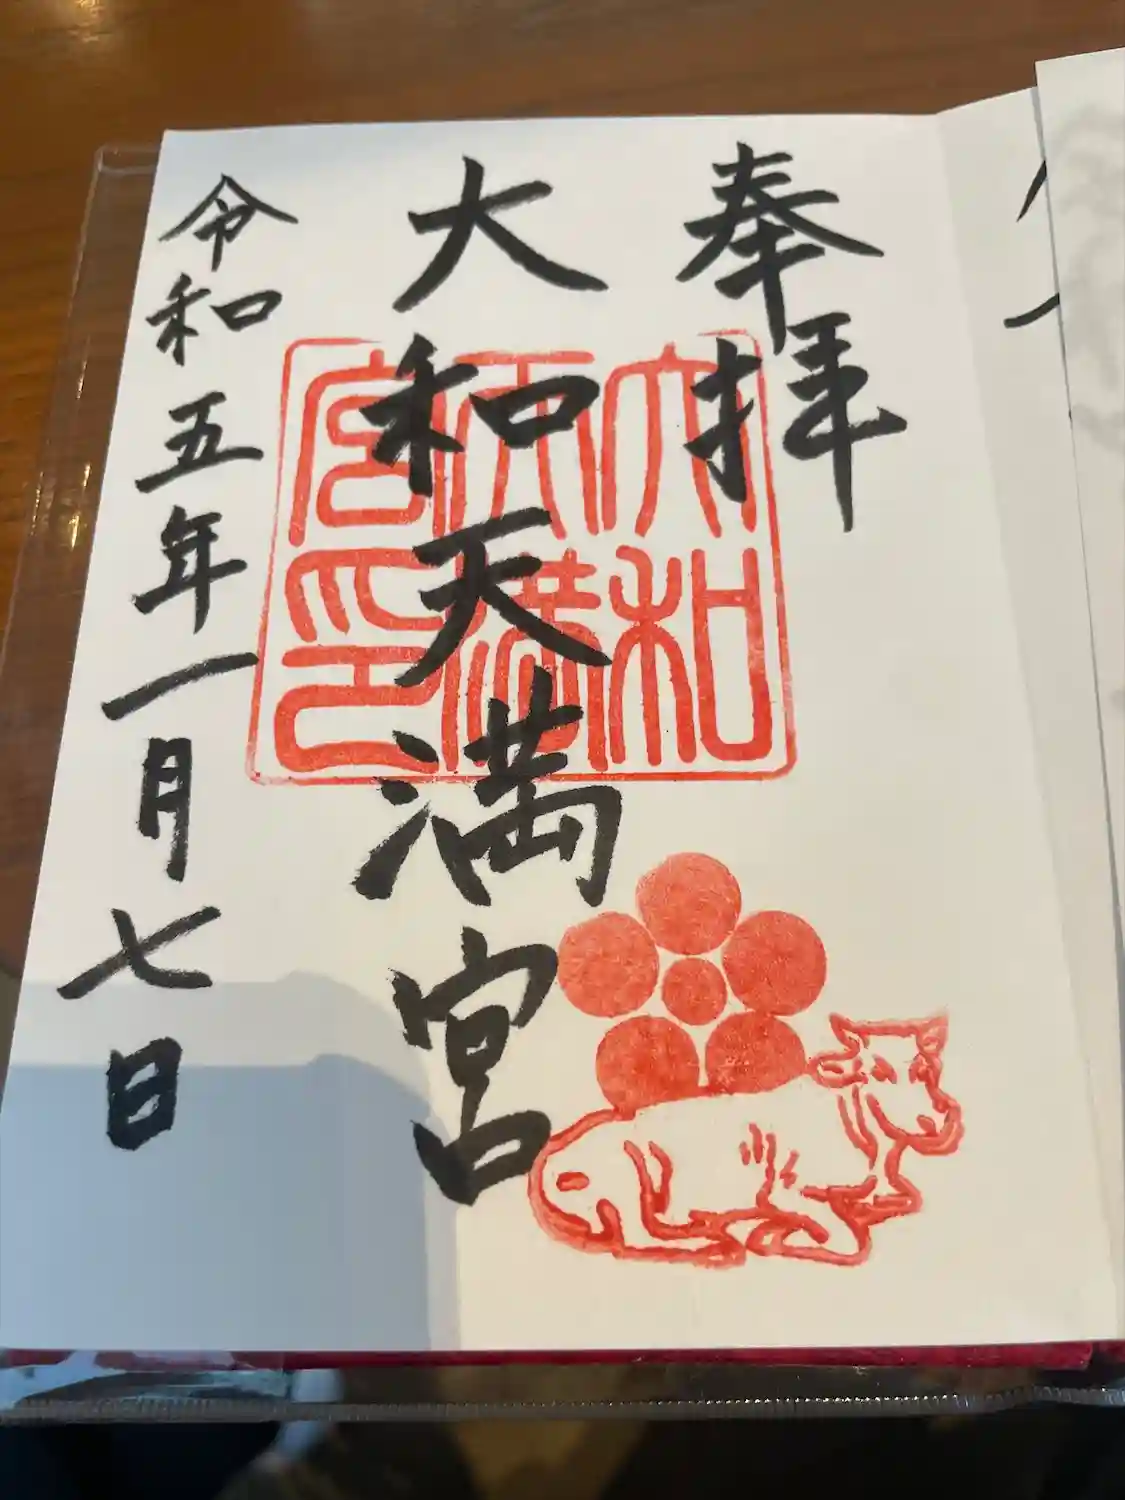 奉拝
大和天満宮
大和天満宮印
令和五年一月七日